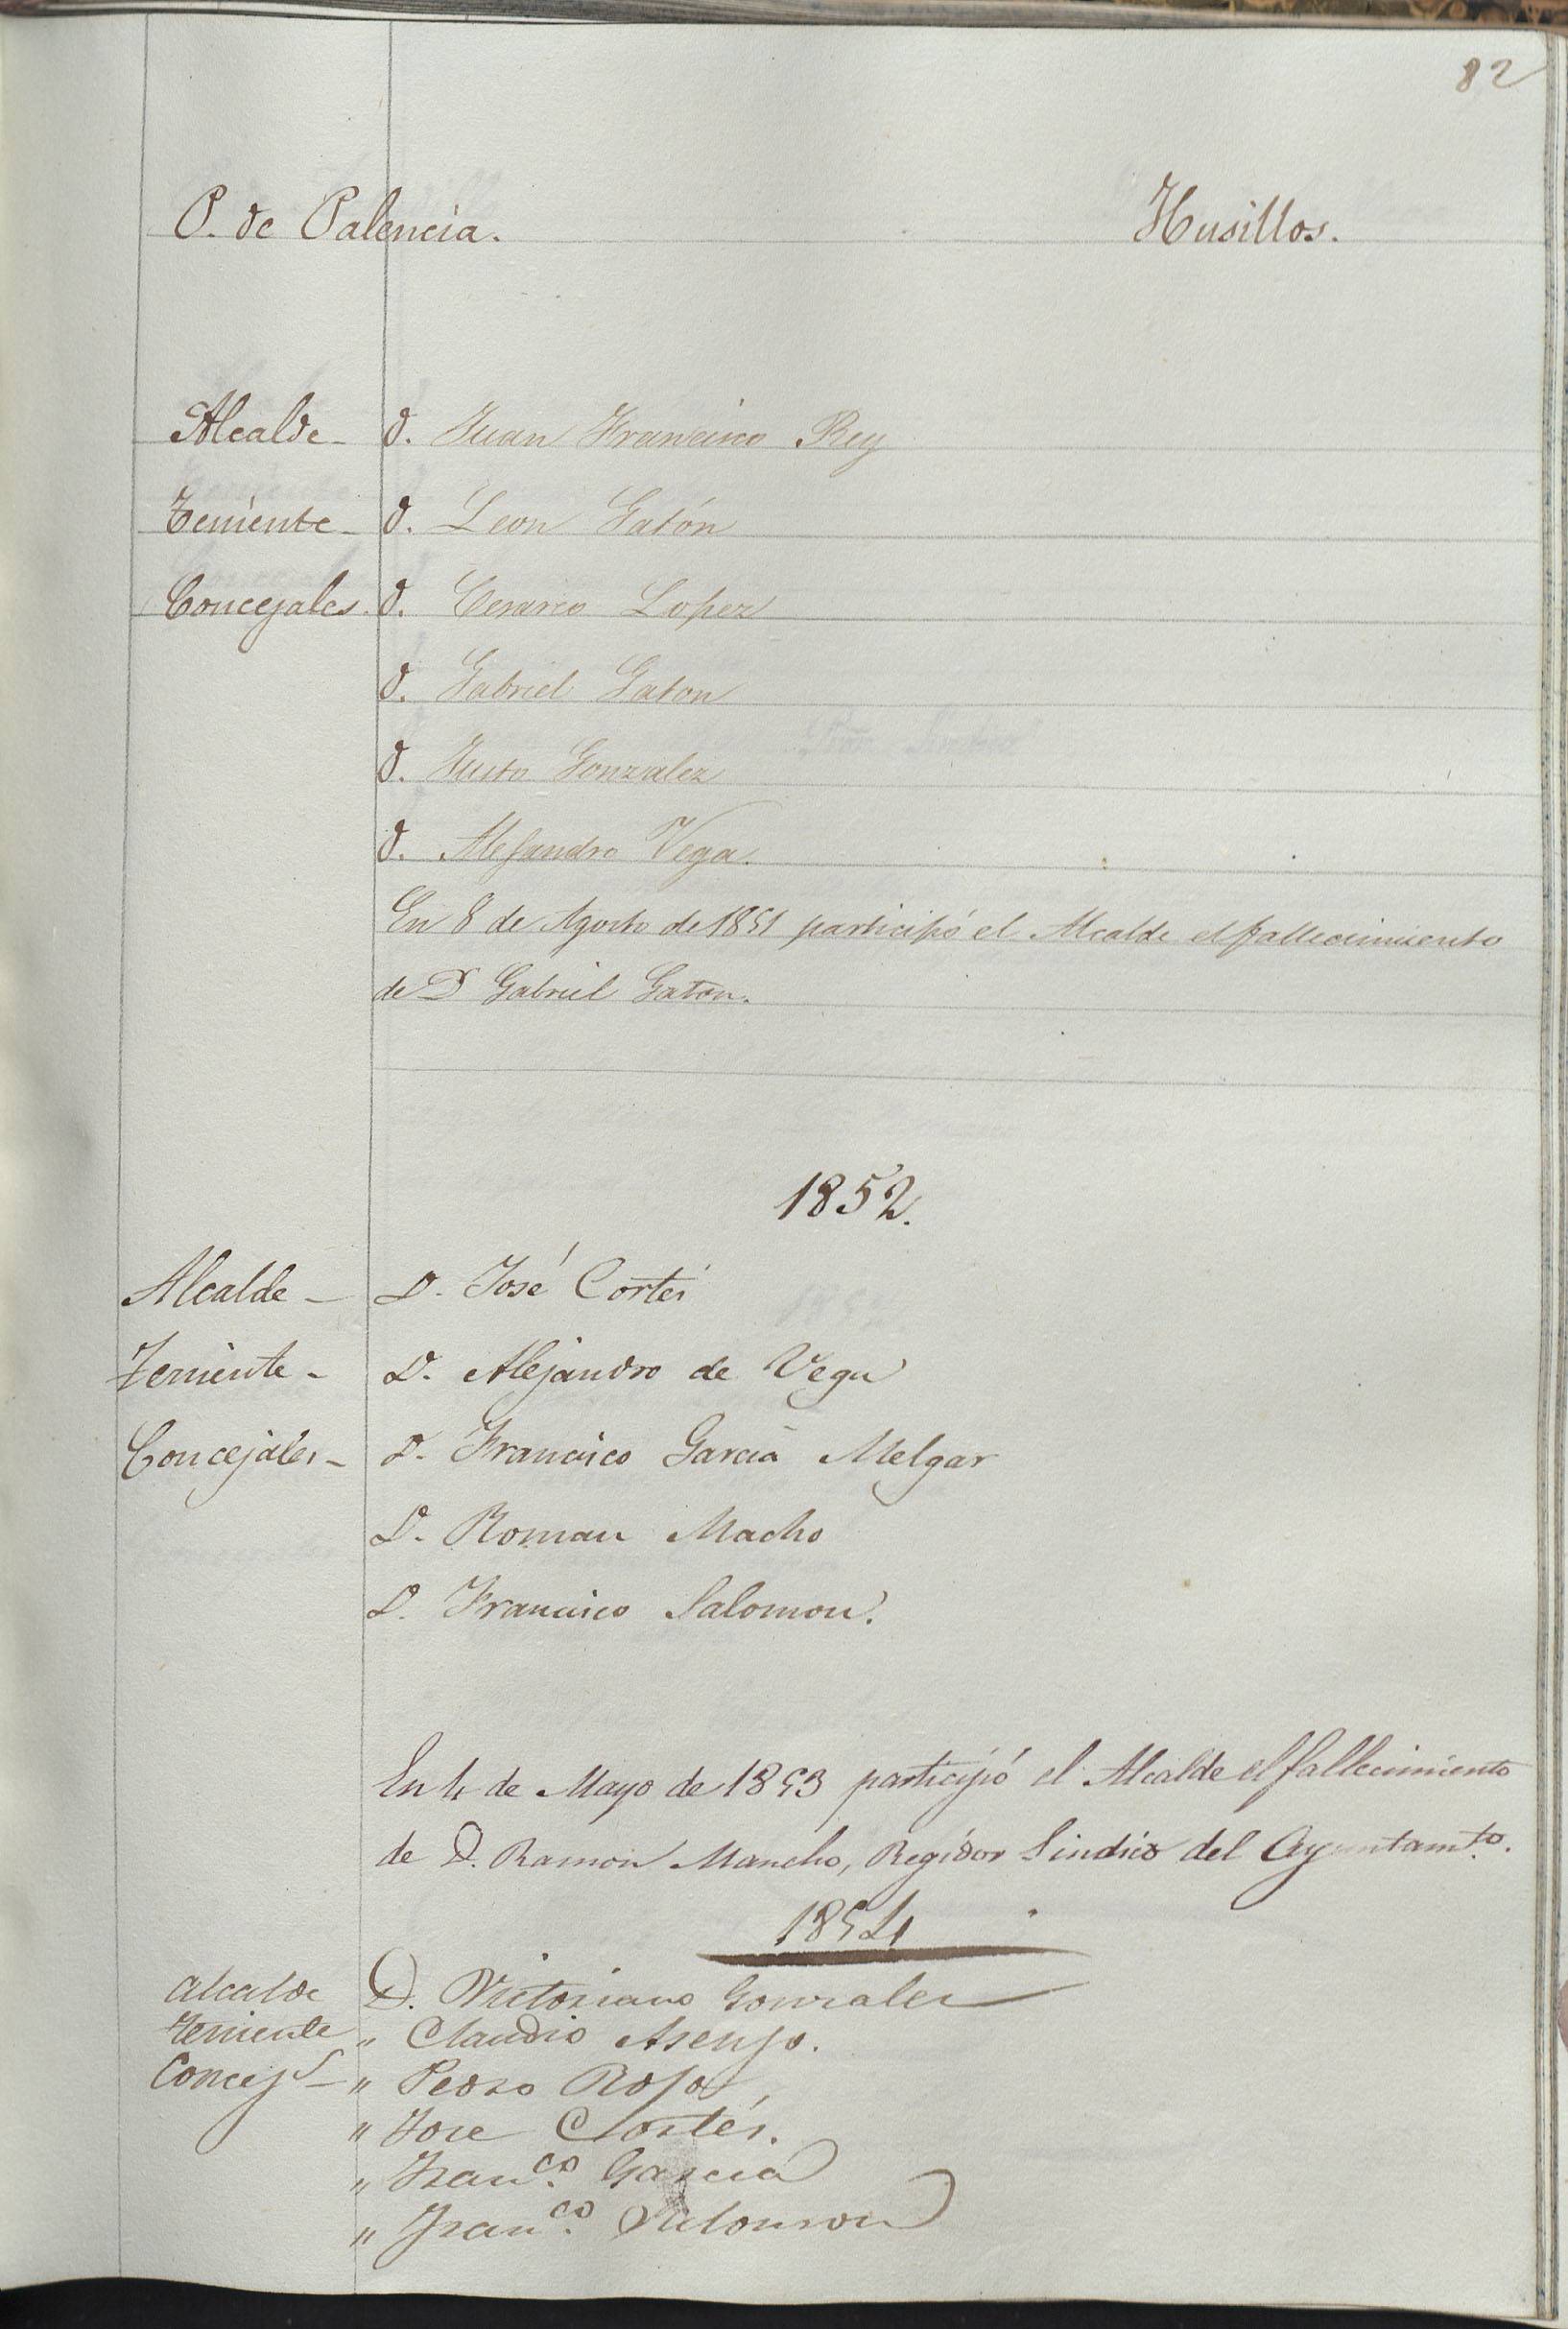 82
P. de Palencia. Husillos.
Alcalde - D. Juan Francisco Rey
Teniente - D. Leon Gatón
Concejales. D. Cesareo Lopez
D. Gabriel Gaton
D. Justo Gonzalez
D. Alejandro Vega.
En 8 de Agosto de 1851 participó el Alcalde el fallecimiento
de D Gabriel Gaton.
1852.
Alcalde - D. José Cortés
Teniente - D. Alejandro de Vega
Concejales - D. Francisco García Melgar
D. Roman Macho
D. Francisco Salomon.
En 4 de Mayo de 1853 participó el Alcalde el fallecimiento
de D. Ramon Mancho, Regidor Sindico del Ayuntamto.
1854
Alcalde D. Victoriano Gonzalez
Teniente " Claudio Asenjo.
Concejs - " Pedro Rojo
" Jose Cortés.
" Franco. García
" Franco. Salomon